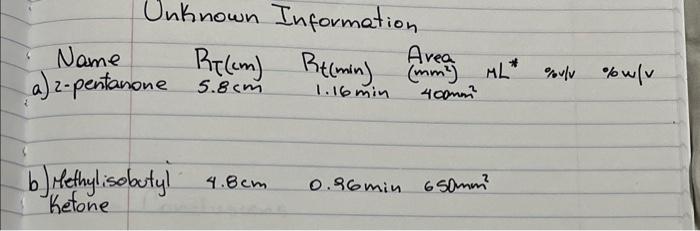 Unknown Information
Name RT(cm) Rt(min) Area (mm²) mL* %v/v %w/v
a) 2-pentanone 5.8cm 1.16min 400mm²
b) Methylisobutyl 4.8cm 0.96min 650mm²
Ketone